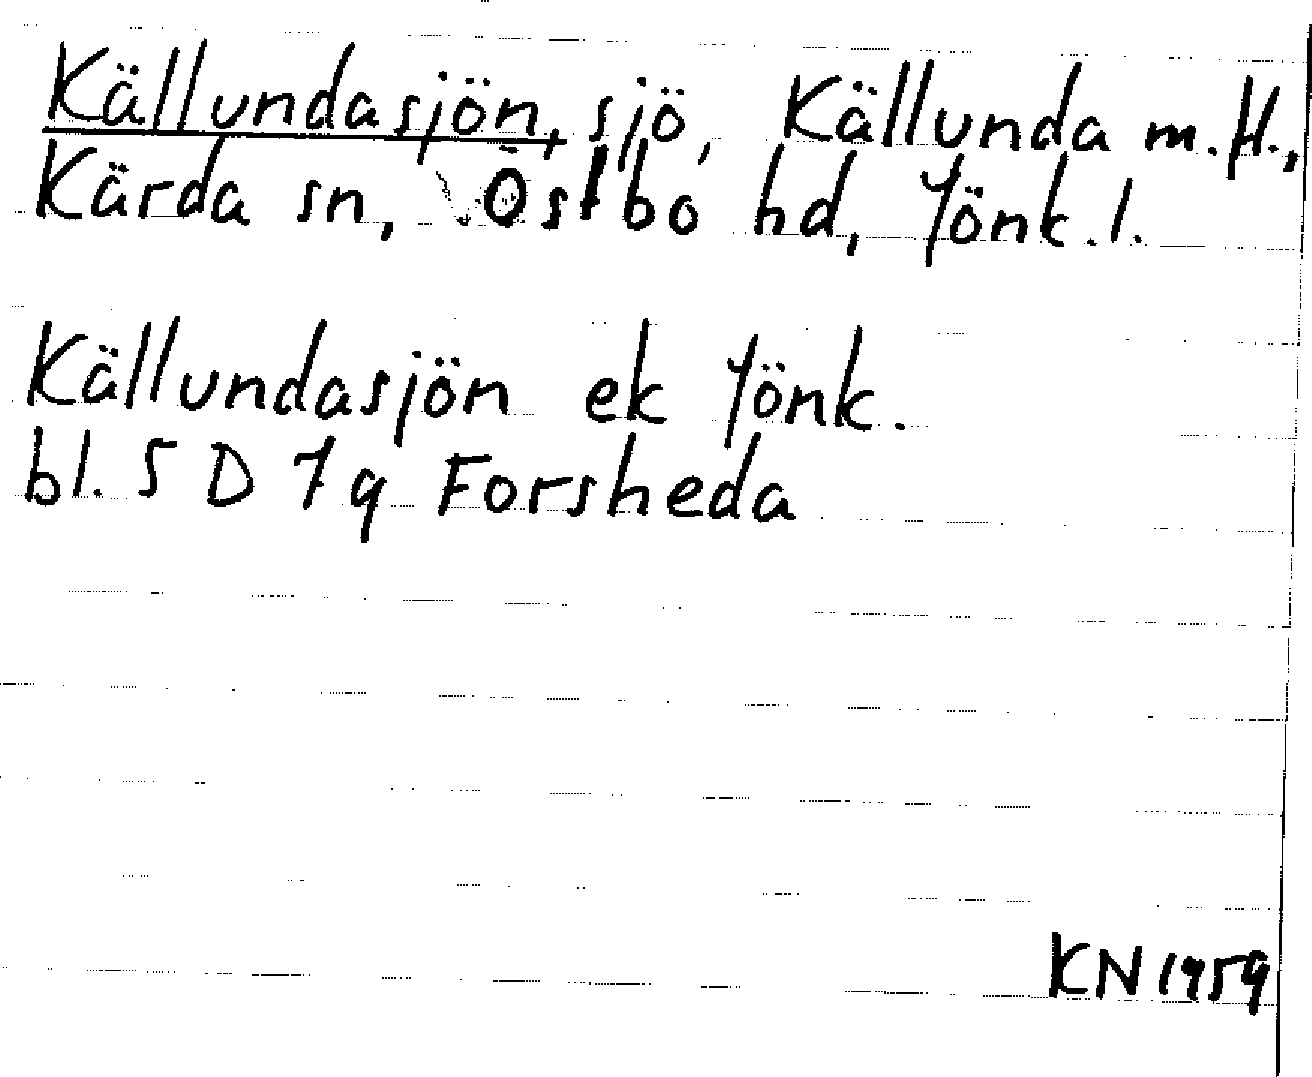 Källundasjön, sjö, Källunda m. fl.,
Kärda sn, Östbo hd, Jönk. l.
Källundasjön ek Jönk.
bl. 5 D 7 g Forsheda
KN 1959